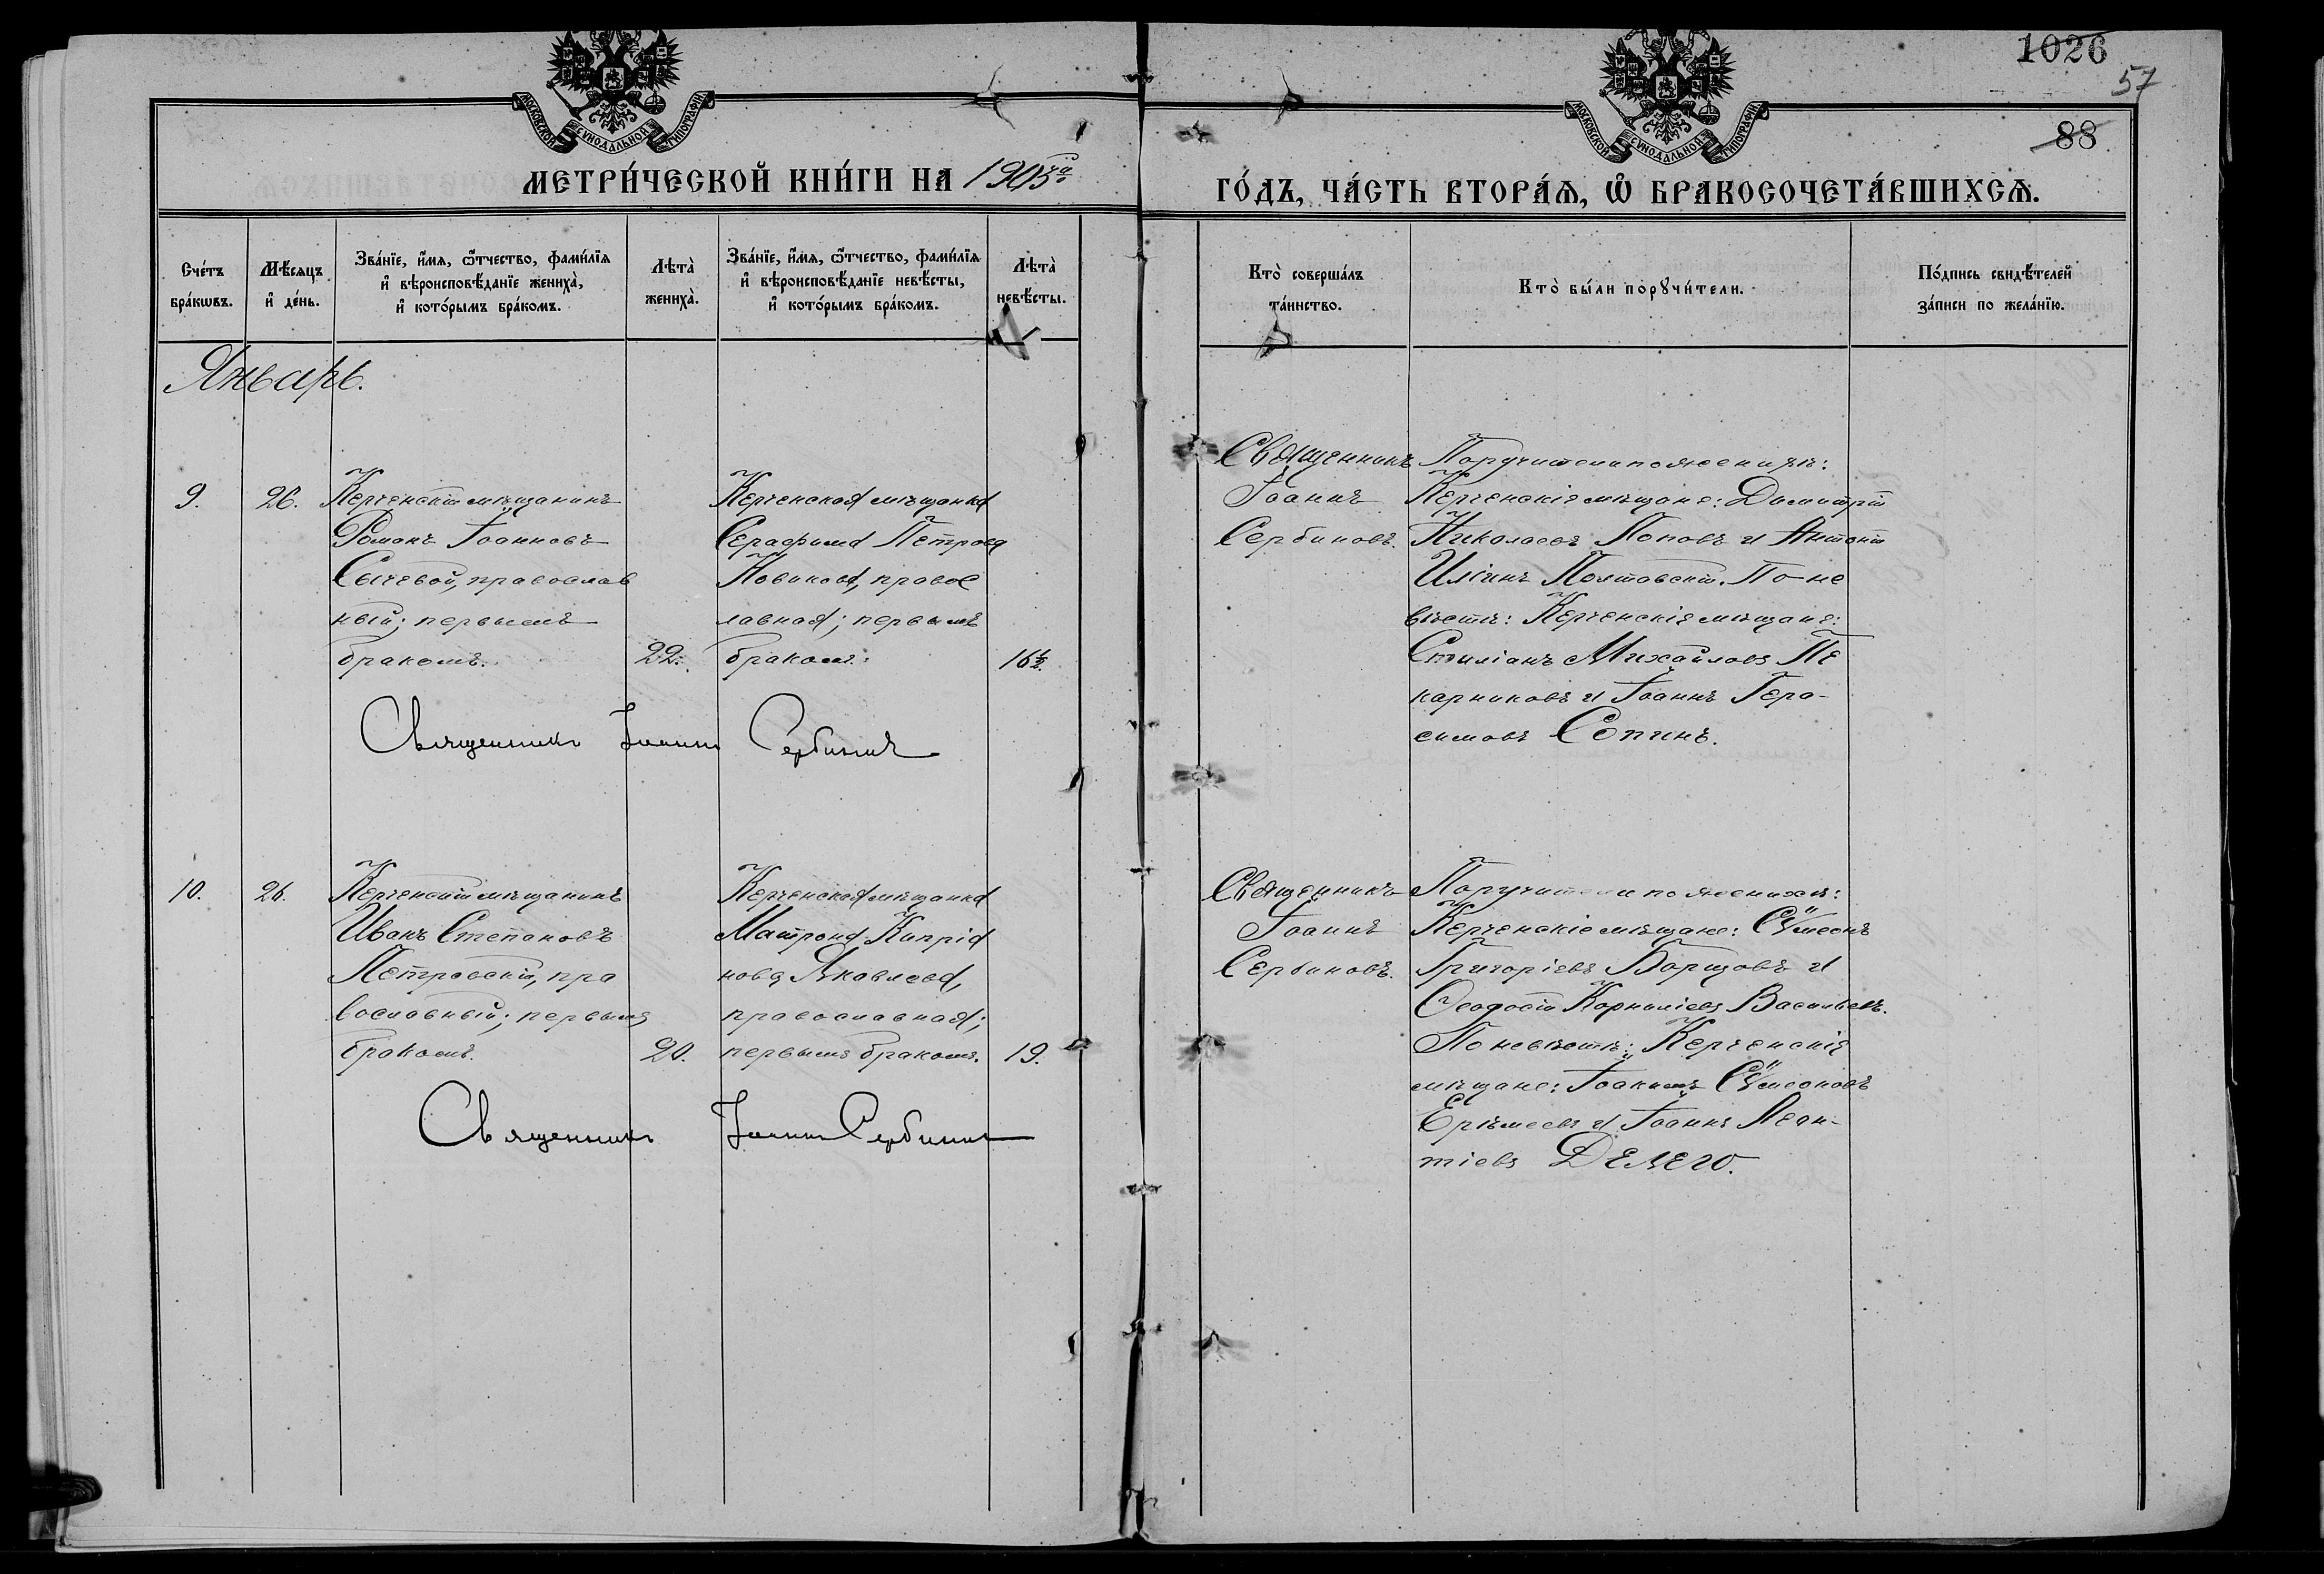 1026
57
88
МОСКОВСКОЙ СѴНОДАЛЬНОЙ ТИПОГРАФІИ
МОСКОВСКОЙ СѴНОДАЛЬНОЙ ТИПОГРАФІИ
МЕТРИ́ЧЕСКОЙ КНИ́ГИ НА 1905й
ГО́ДЪ, ЧА́СТЬ ВТОРА́Ѧ, Ѽ БРАКОСОЧЕТА́ВШИХСѦ.
Сче́тъ
бра́кωвъ.
Мѣ́сяцъ
и҆ де́нь.
Зва́нїе, и҆́мѧ, ѻ҆́тчество, фами́лїѧ
и҆ вѣроисповѣ́данїе жениха̀,
и҆ кото́рымъ бра́комъ.
Лѣта̀
жениха̀.
Зва́нїе, и҆́мѧ, ѻ҆́тчество, фами́лїѧ
и҆ вѣроисповѣ́данїе невѣ́сты,
и҆ кото́рымъ бра́комъ.
Лѣта̀
невѣ́сты.
Кто̀ соверша́лъ
та́инство.
Кто̀ бы́ли порꙋчи́тели.
По́дпись свидѣ́телей
за́писи по жела́нїю.
Январь.
9.
26.
Керченскій мѣщанинъ
Романъ Іоанновъ
Сычевой, православ
ный; первымъ
бракомъ.
22.
Керченская мѣщанка
Серафима Петрова
Новикова, правос
лавная; первымъ
бракомъ.
16½.
Священникъ
Іоаннъ
Сербиновъ.
Поручители по женихѣ:
Керченскіе мѣщане: Димитрій
Николаевъ Поповъ и Антоній
Ильинъ Полтавскій. По не
вѣстѣ: Керченскіе мѣщане:
Стиліанъ Михайловъ Пе
карниковъ и Іоаннъ Гера-
симовъ Сопинъ.
Священникъ Іоаннъ Сербиновъ
10.
26.
Керченскій мѣщанинъ
Иванъ Степановъ
Петровскій, пра
вославный; первымъ
бракомъ.
20.
Керченская мѣщанка
Матрона Кипріа
нова Яковлева,
православная;
первымъ бракомъ.
19.
Священникъ
Іоаннъ
Сербиновъ.
Поручители по женихѣ:
Керченскіе мѣщане: Сѵмеонъ
Григоріевъ Борщовъ и
Ѳеодосій Корниліевъ Васильевъ.
По невѣстѣ: Керченскіе
мѣщане: Іоакимъ Сѵмеоновъ
Ерѣмеевъ и Іоаннъ Леон-
тіевъ Делего.
Священникъ Іоаннъ Сербиновъ